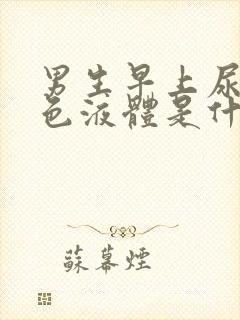 男生早上尿
色液體是什
蘇幕煙